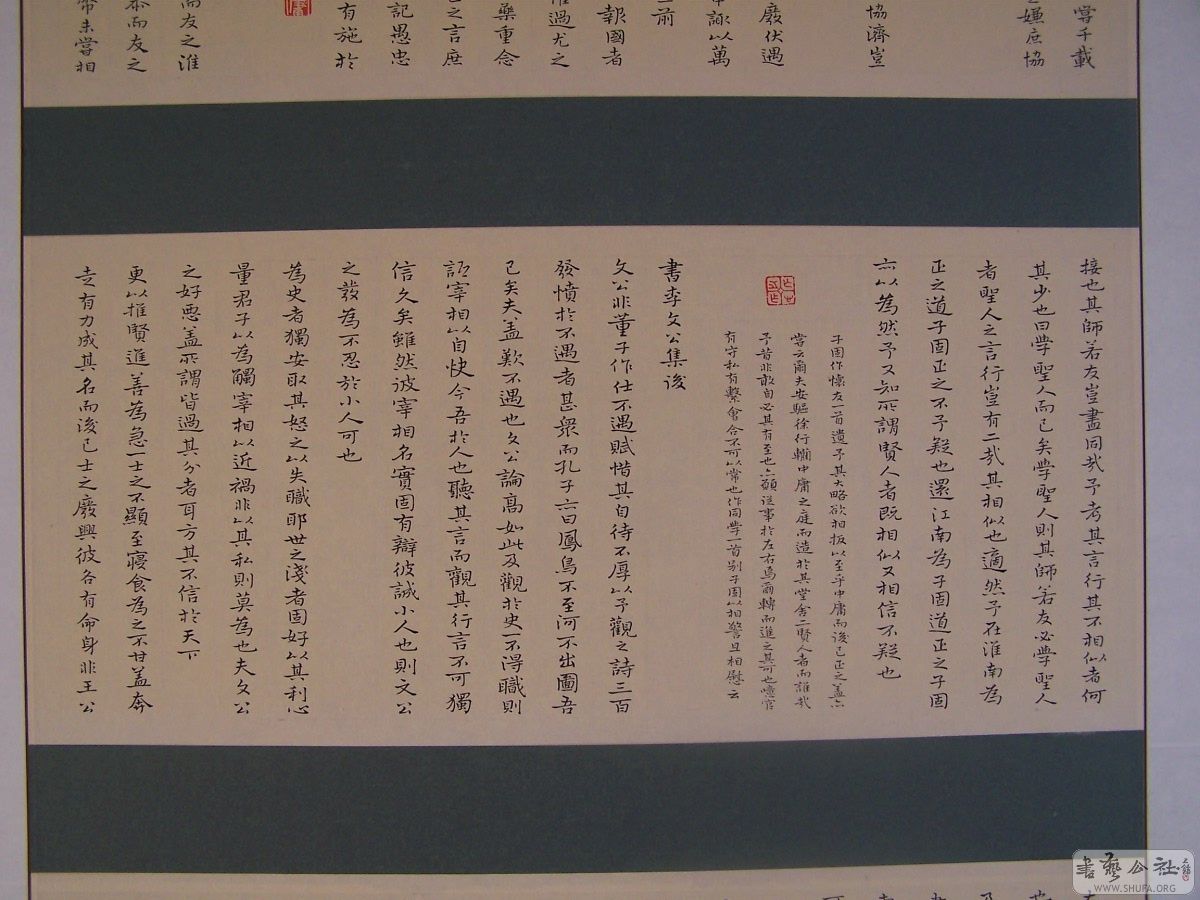 嘗千載
之嫌庶協
協濟豈
廢伏遇
以萬
前
報國者
過尤之
藥重念
之言庶
記愚忠
有施於
而友之淮
慕而友之
幣未嘗相
接也其師若友豈盡同哉予考其言行其不相似者何
其少也曰學聖人而已矣學聖人則其師若友必學聖人
者聖人之言行豈有二哉其相似也適然予在淮南為
正之道子固正之不予疑也還江南為子固道正之子固
亦以為然予又知所謂賢人者既相似又相信不疑也
子固作懷友一首遺予其大略欲相扳以至乎中庸而後已正之蓋亦
嘗云爾夫安驅徐行轥中庸之庭而造於其堂舍二賢人者而誰哉
予昔非敢自必其有至也亦願從事於左右焉爾輔而進之其可也噫官
有守私有繫會合不可以常也作同學一首別子固以相警且相慰云
書李文公集後
文公非董子作仕不遇賦惜其自待不厚以予觀之詩三百
發憤於不遇者甚衆而孔子亦曰鳳鳥不至河不出圖吾
已矣夫蓋歎不遇也文公論高如此及觀於史一不得職則
詆宰相以自快今吾於人也聽其言而觀其行言不可獨
信久矣雖然彼宰相名實固有辯彼誠小人也則文公
之發為不忍於小人可也
為史者獨安取其怒之以失職耶世之淺者固好以其利心
量君子以為觸宰相以近禍非以其私則莫為也夫文公
之好惡蓋所謂皆過其分者耳方其不信於天下
更以推賢進善為急一士之不顯至寢食為之不甘蓋奔
走有力成其名而後已士之廢興彼各有命身非王公
書藝公社
WWW.SHUFA.ORG